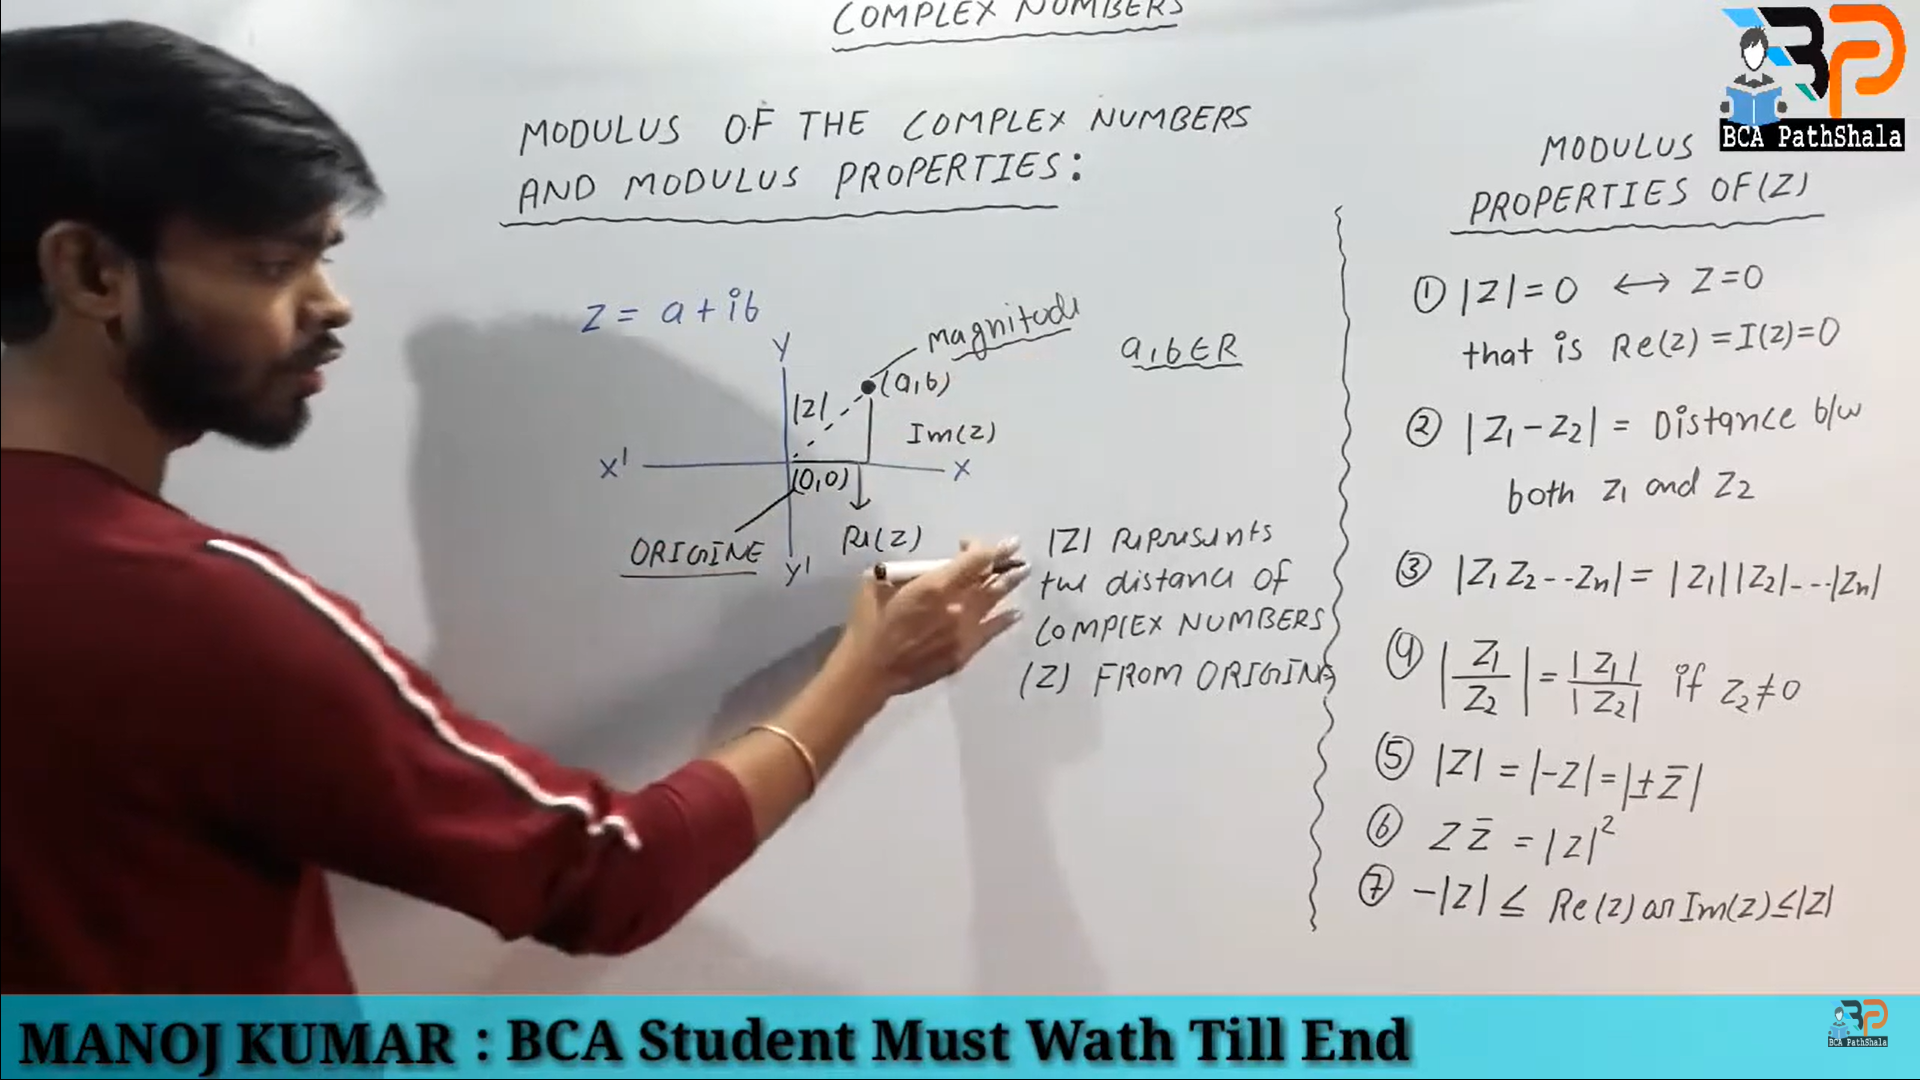 COMPLEX NUMBERS
MODULUS OF THE COMPLEX NUMBERS
AND MODULUS PROPERTIES:
Z = a + ib
Y
magnitude
(a,b)
|Z|
Im(Z)
X'
X
(0,0)
ORIGINE
Re(Z)
Y'
a,b∈R
|Z| represents
the distance of
COMPLEX NUMBERS
(Z) FROM ORIGINE
MODULUS
PROPERTIES OF(Z)
① |Z|=0 ↔ Z=0
that is Re(z)=I(z)=0
② |Z₁-Z₂| = Distance b/w
both Z₁ and Z₂
③ |Z₁Z₂---Zₙ|=|Z₁||Z₂|---|Zₙ|
④ |Z₁/Z₂|=|Z₁|/|Z₂| if Z₂≠0
⑤ |Z|=|-Z|=|±Z̄|
⑥ ZZ̄ =|Z|²
⑦ -|Z| ≤ Re(z) or Im(z)≤|Z|
BP
BCA PathShala
MANOJ KUMAR : BCA Student Must Wath Till End
BP
BCA PathShala